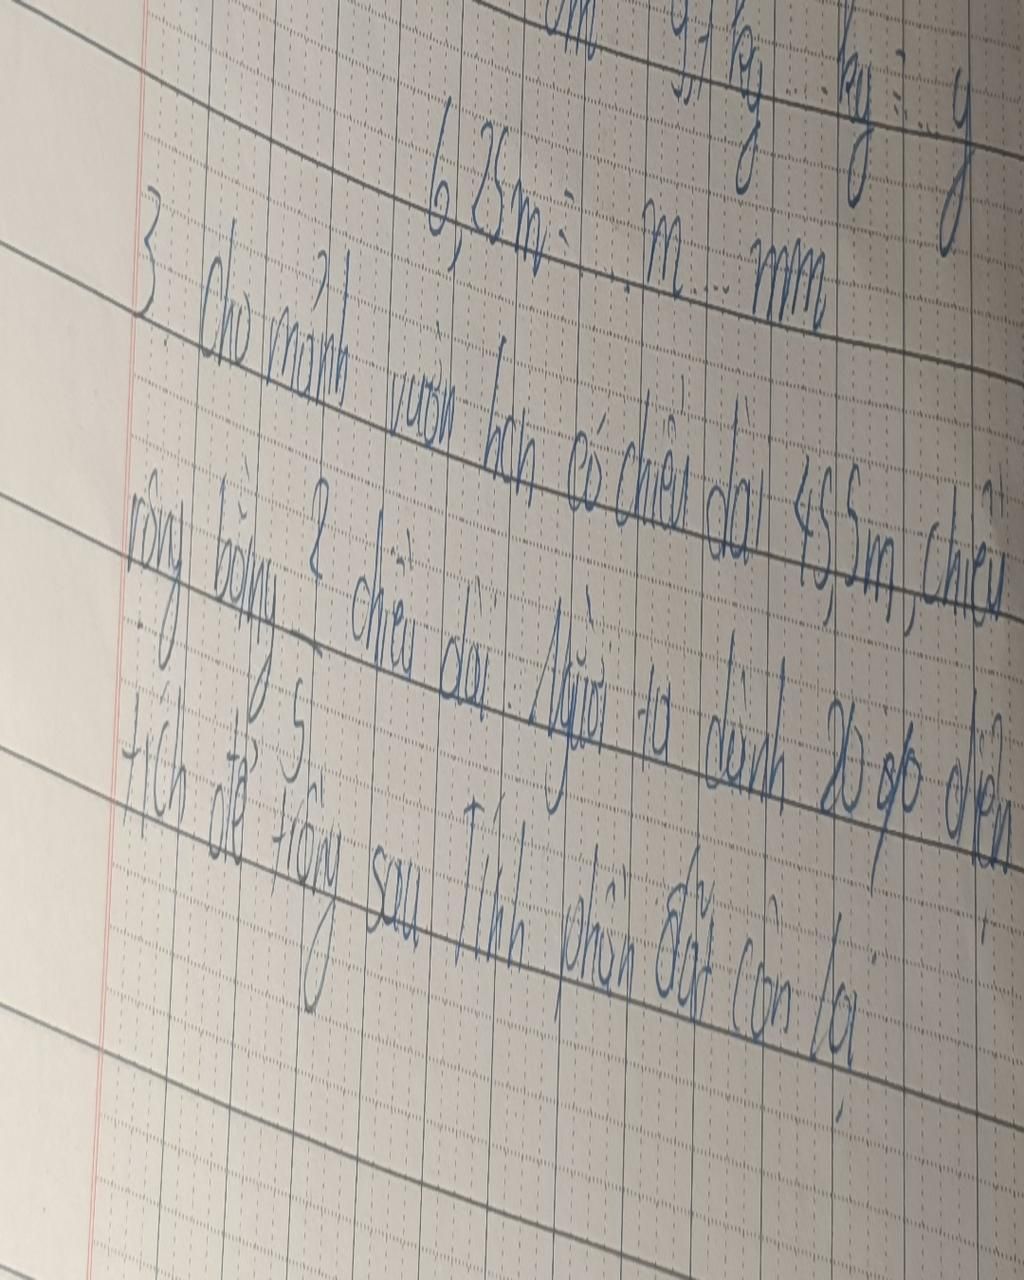 kg = g
6,25m = ... m ... mm
3 Cho mảnh vườn hcn có chiều dài 45,5m, chiều
rộng bằng 2/5 chiều dài. Người ta dành 20% diện
tích để trồng sau Tính phần đất còn lại